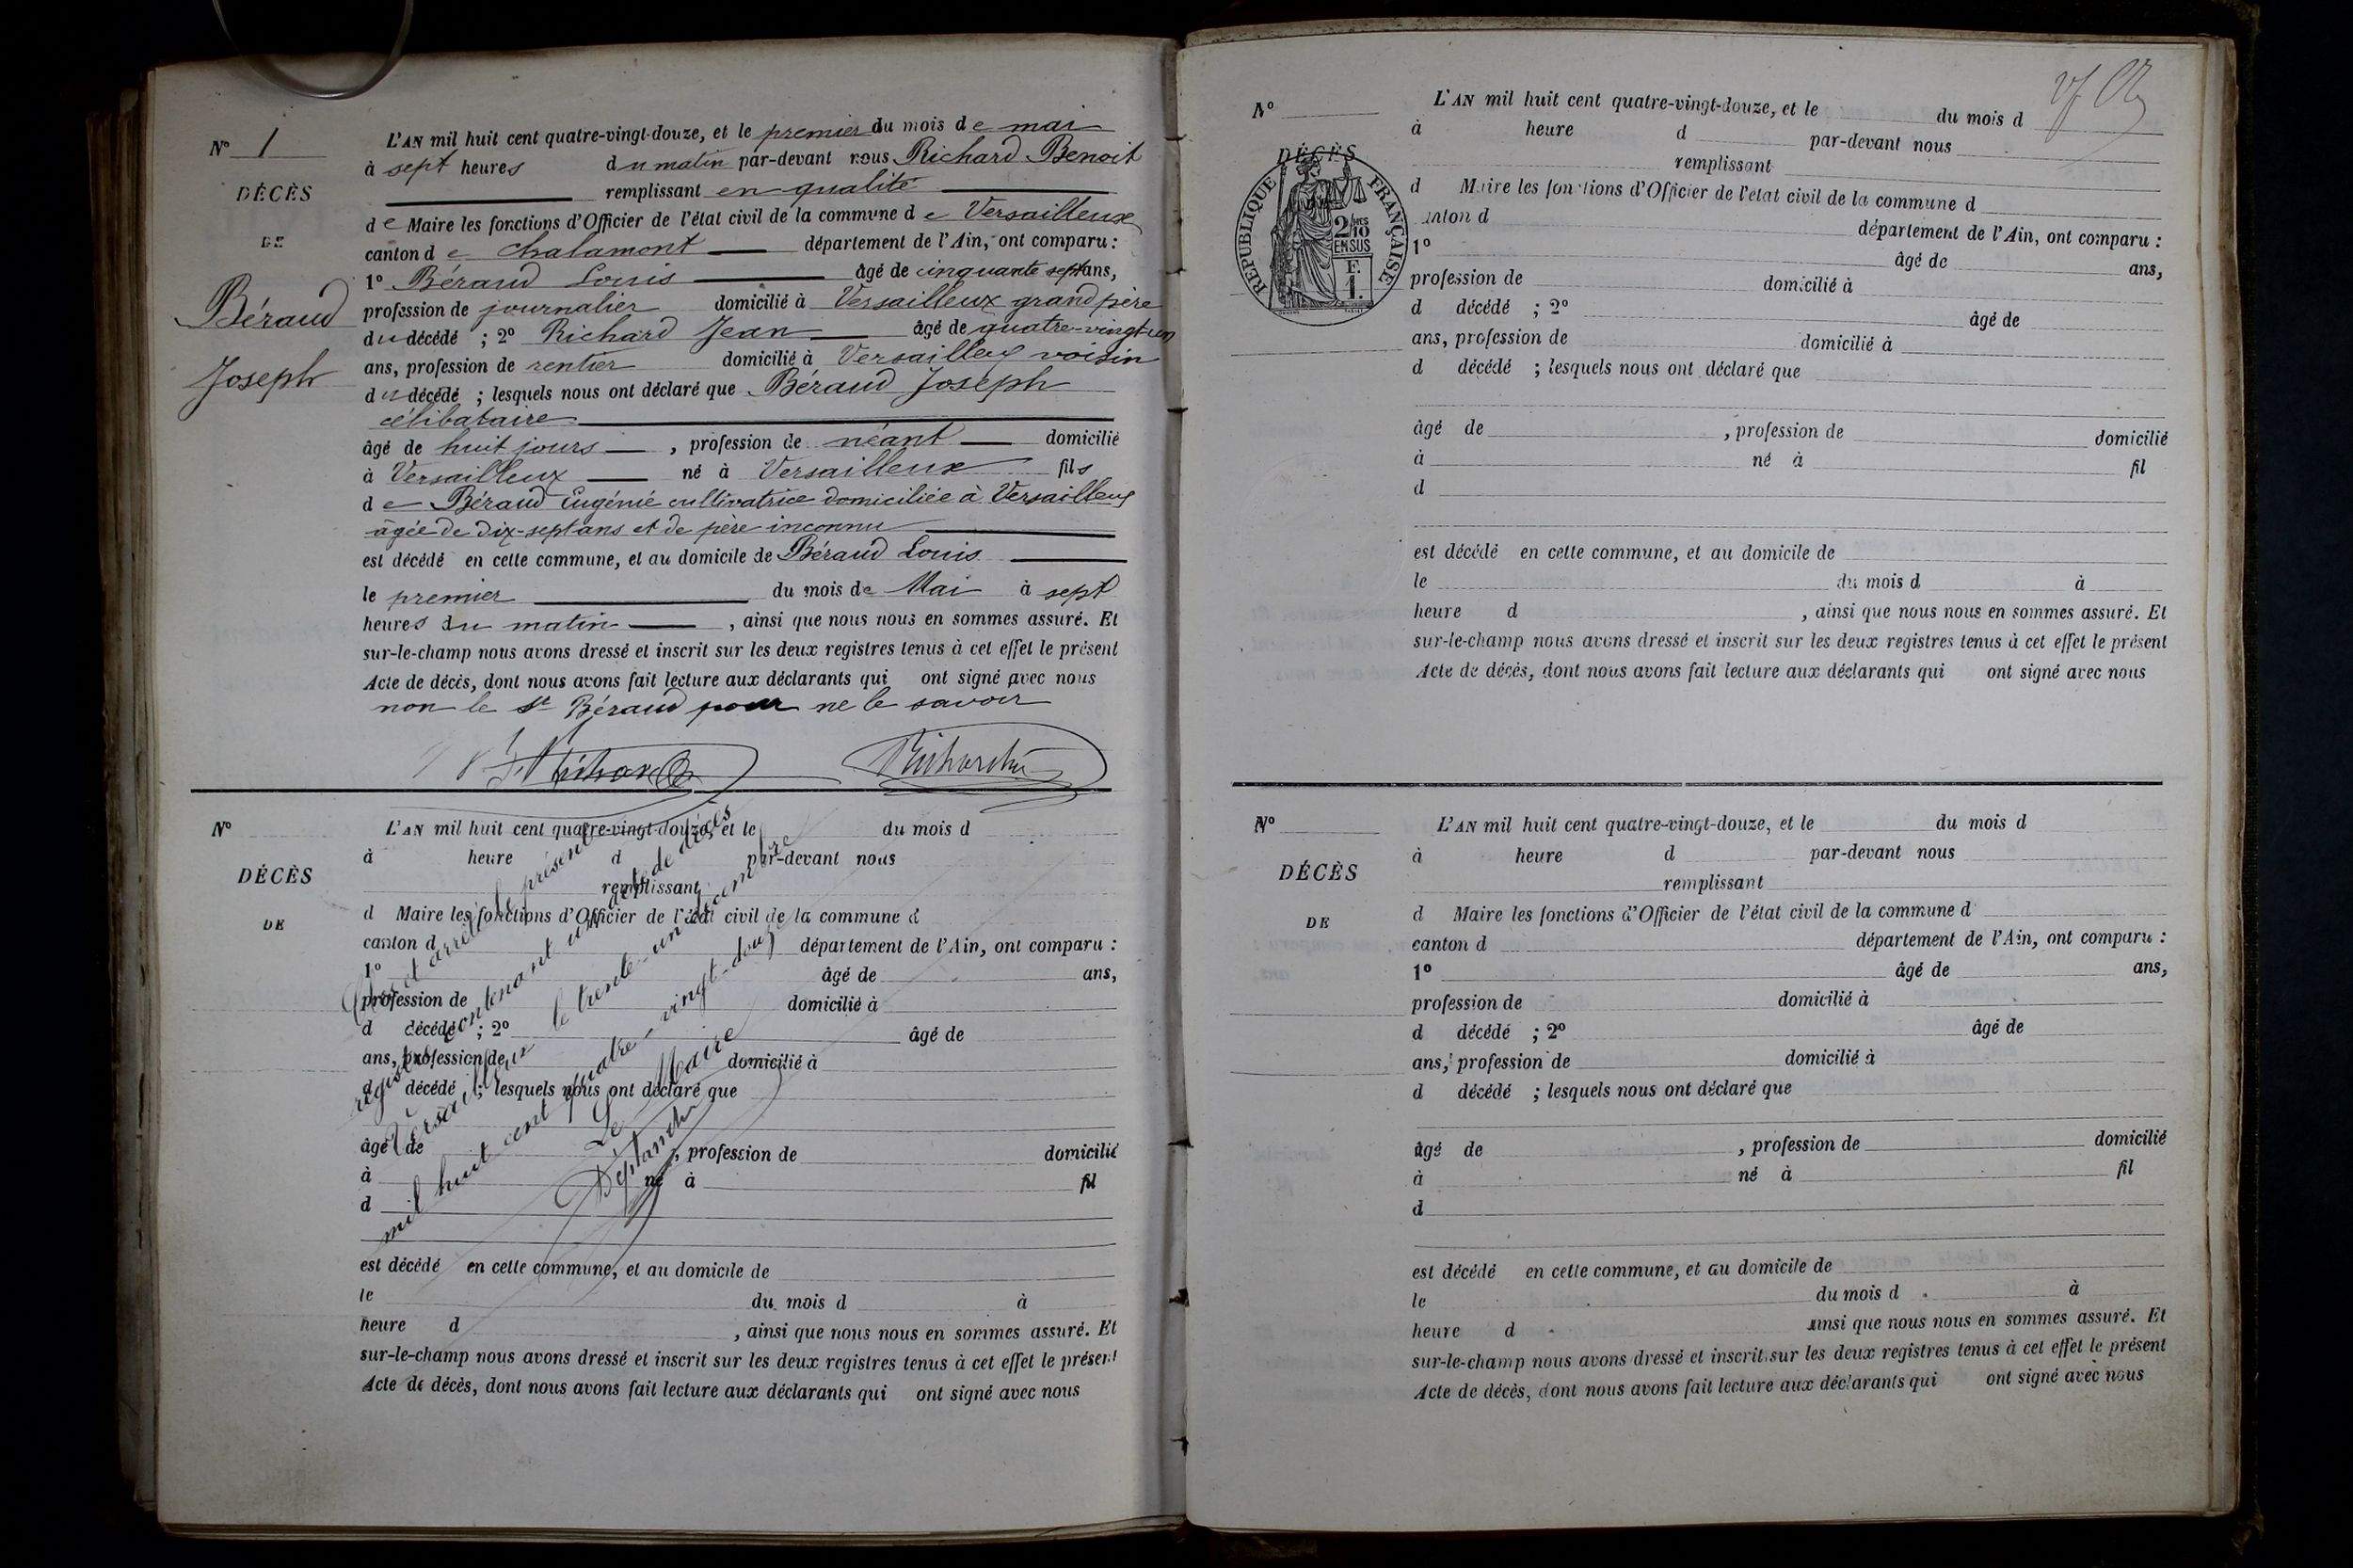 N° 1
DÉCÈS
DE
Béraud
Joseph
L'AN mil huit cent quatre-vingt-douze, et le premier du mois de mai
à sept heures du matin par-devant nous Richard Benoit
remplissant en qualité
de Maire les fonctions d'Officier de l'état civil de la commune de Versailleux
canton de Chalamont département de l'Ain, ont comparu :
1° Béraud Louis âgé de cinquante sept ans,
profession de journalier domicilié à Versailleux grand père
du décédé ; 2° Richard Jean âgé de quatre-vingt-un
ans, profession de rentier domicilié à Versailleux voisin
du décédé ; lesquels nous ont déclaré que Béraud Joseph
célibataire
âgé de huit jours , profession de néant domicilié
à Versailleux né à Versailleux fils
de Béraud Eugénie cultivatrice domiciliée à Versailleux
âgée de dix-sept ans et de père inconnu
est décédé en cette commune, et au domicile de Béraud Louis
le premier du mois de Mai à sept
heures du matin , ainsi que nous nous en sommes assuré. Et
sur-le-champ nous avons dressé et inscrit sur les deux registres tenus à cet effet le présent
Acte de décès, dont nous avons fait lecture aux déclarants qui ont signé avec nous
non le sr Béraud pour ne le savoir
Richard
N°
DÉCÈS
DE
L'AN mil huit cent quatre-vingt-douze, et le du mois d
à heure d par-devant nous
remplissant
d Maire les fonctions d'Officier de l'état civil de la commune d
canton d département de l'Ain, ont comparu :
1° âgé de ans,
profession de domicilié à
d décédé ; 2° âgé de
ans, profession de domicilié à
d décédé ; lesquels nous ont déclaré que
âgé de , profession de domicilié
à né à fil
d
est décédé en cette commune, et au domicile de
le du mois d à
heure d , ainsi que nous nous en sommes assuré. Et
sur-le-champ nous avons dressé et inscrit sur les deux registres tenus à cet effet le présent
Acte de décès, dont nous avons fait lecture aux déclarants qui ont signé avec nous
Clos et arrêté le présent
registre contenant un acte de décès
Versailleux le trente-un décembre
mil huit cent quatre-vingt-douze
Le Maire
N°
DÉCÈS
RÉPUBLIQUE FRANÇAISE
2/10
EN SUS
F.
1.
L'AN mil huit cent quatre-vingt-douze, et le du mois d
à heure d par-devant nous
remplissant
d Maire les fonctions d'Officier de l'état civil de la commune d
anton d département de l'Ain, ont comparu :
1° âgé de ans,
profession de domicilié à
d décédé ; 2° âgé de
ans, profession de domicilié à
d décédé ; lesquels nous ont déclaré que
âgé de , profession de domicilié
à né à fil
d
est décédé en cette commune, et au domicile de
le du mois d à
heure d , ainsi que nous nous en sommes assuré. Et
sur-le-champ nous avons dressé et inscrit sur les deux registres tenus à cet effet le présent
Acte de décès, dont nous avons fait lecture aux déclarants qui ont signé avec nous
N°
DÉCÈS
DE
L'AN mil huit cent quatre-vingt-douze, et le du mois d
à heure d par-devant nous
remplissant
d Maire les fonctions d'Officier de l'état civil de la commune d
canton d département de l'Ain, ont comparu :
1° âgé de ans,
profession de domicilié à
d décédé ; 2° âgé de
ans, profession de domicilié à
d décédé ; lesquels nous ont déclaré que
âgé de , profession de domicilié
à né à fil
d
est décédé en cette commune, et au domicile de
le du mois d à
heure d ainsi que nous nous en sommes assuré. Et
sur-le-champ nous avons dressé et inscrit sur les deux registres tenus à cet effet le présent
Acte de décès, dont nous avons fait lecture aux déclarants qui ont signé avec nous